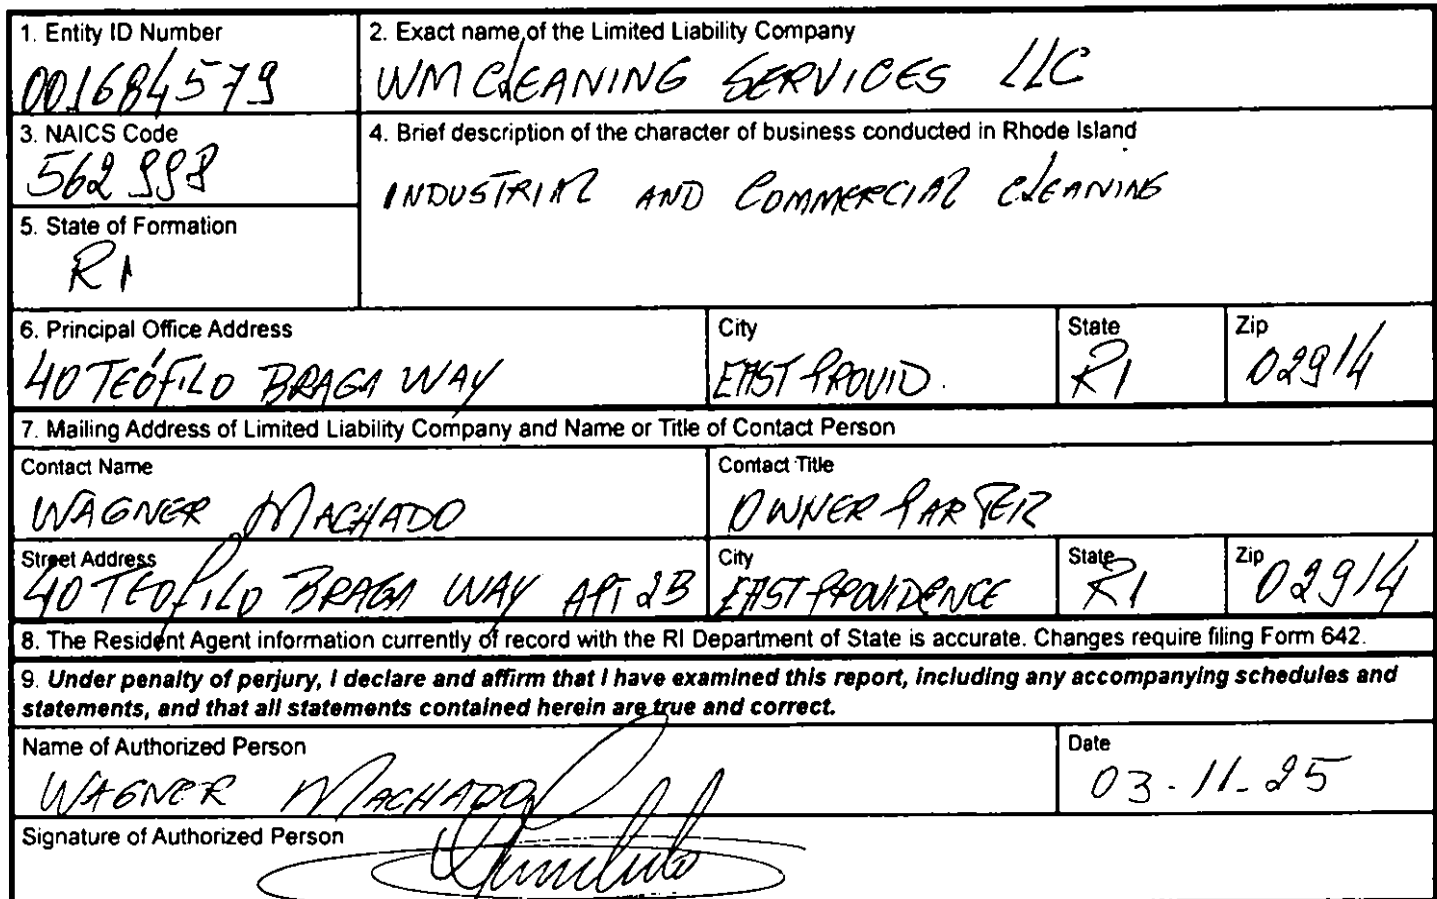 1. Entity ID Number
001684579
2. Exact name of the Limited Liability Company
WM CLEANING SERVICES LLC
3. NAICS Code
562998
4. Brief description of the character of business conducted in Rhode Island
INDUSTRIAL AND COMMERCIAL CLEANING
5. State of Formation
RI
6. Principal Office Address
40 TEÓFILO BRAGA WAY
City
EAST PROVID.
State
RI
Zip
02914
7. Mailing Address of Limited Liability Company and Name or Title of Contact Person
Contact Name
WAGNER MACHADO
Contact Title
OWNER PARTER
Street Address
40 TEOFILO BRAGA WAY APT 2B
City
EAST PROVIDENCE
State
RI
Zip
02914
8. The Resident Agent information currently of record with the RI Department of State is accurate. Changes require filing Form 642.
9. Under penalty of perjury, I declare and affirm that I have examined this report, including any accompanying schedules and
statements, and that all statements contained herein are true and correct.
Name of Authorized Person
WAGNER MACHADO
Date
03-11-25
Signature of Authorized Person